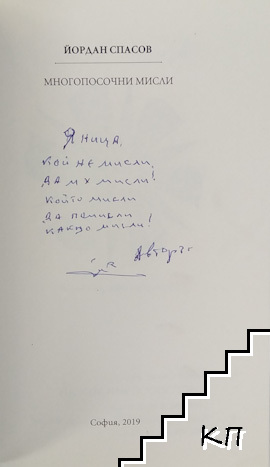 ЙОРДАН СПАСОВ
МНОГОПОСОЧНИ МИСЛИ
Яница,
КОЙ НЕ МИСЛИ,
ДА МУ МИСЛИ!
КОЙТО МИСЛИ
ДА ПОМИСЛИ
КАКВО МИСЛИ!
Авторът
София, 2019
КП